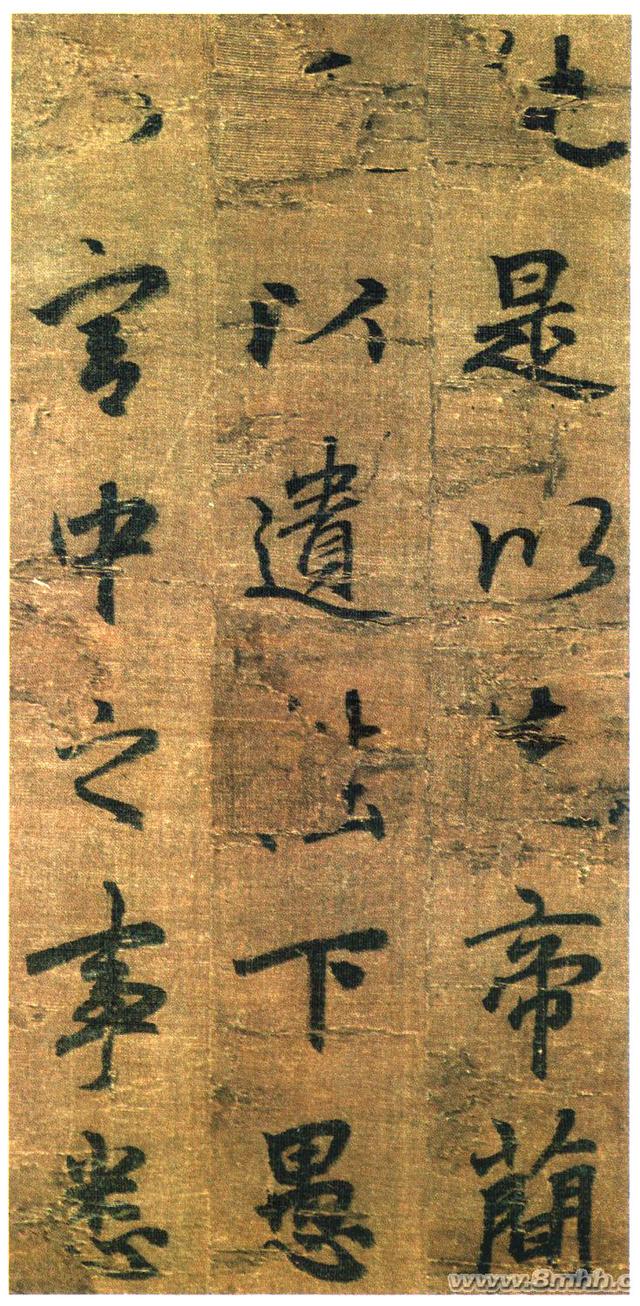 純是以先帝簡
以遺陛下愚
宮中之事悉
www.8mhh.c